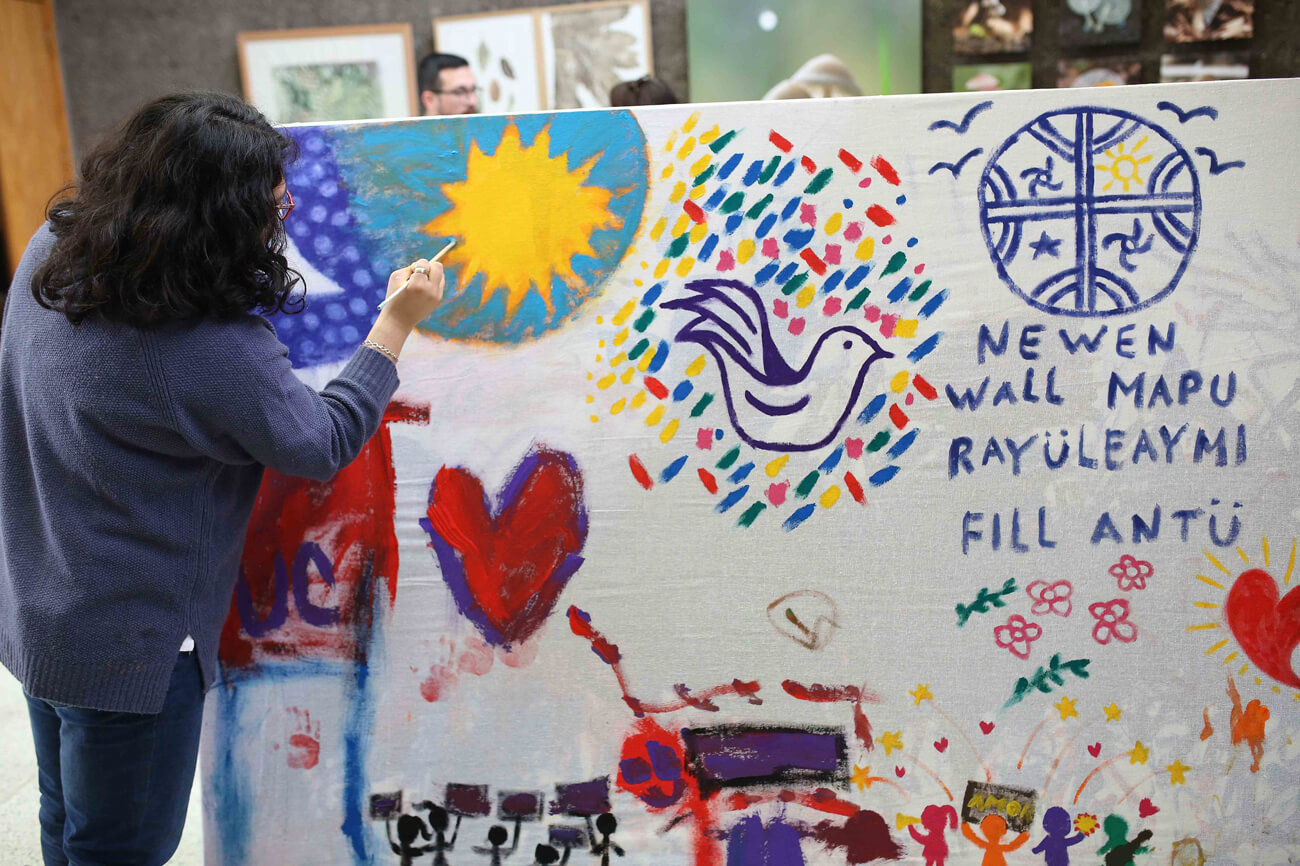 NEWEN
WALL MAPU
RAYÜLEAYMI
FILL ANTÜ
UC
AMOR